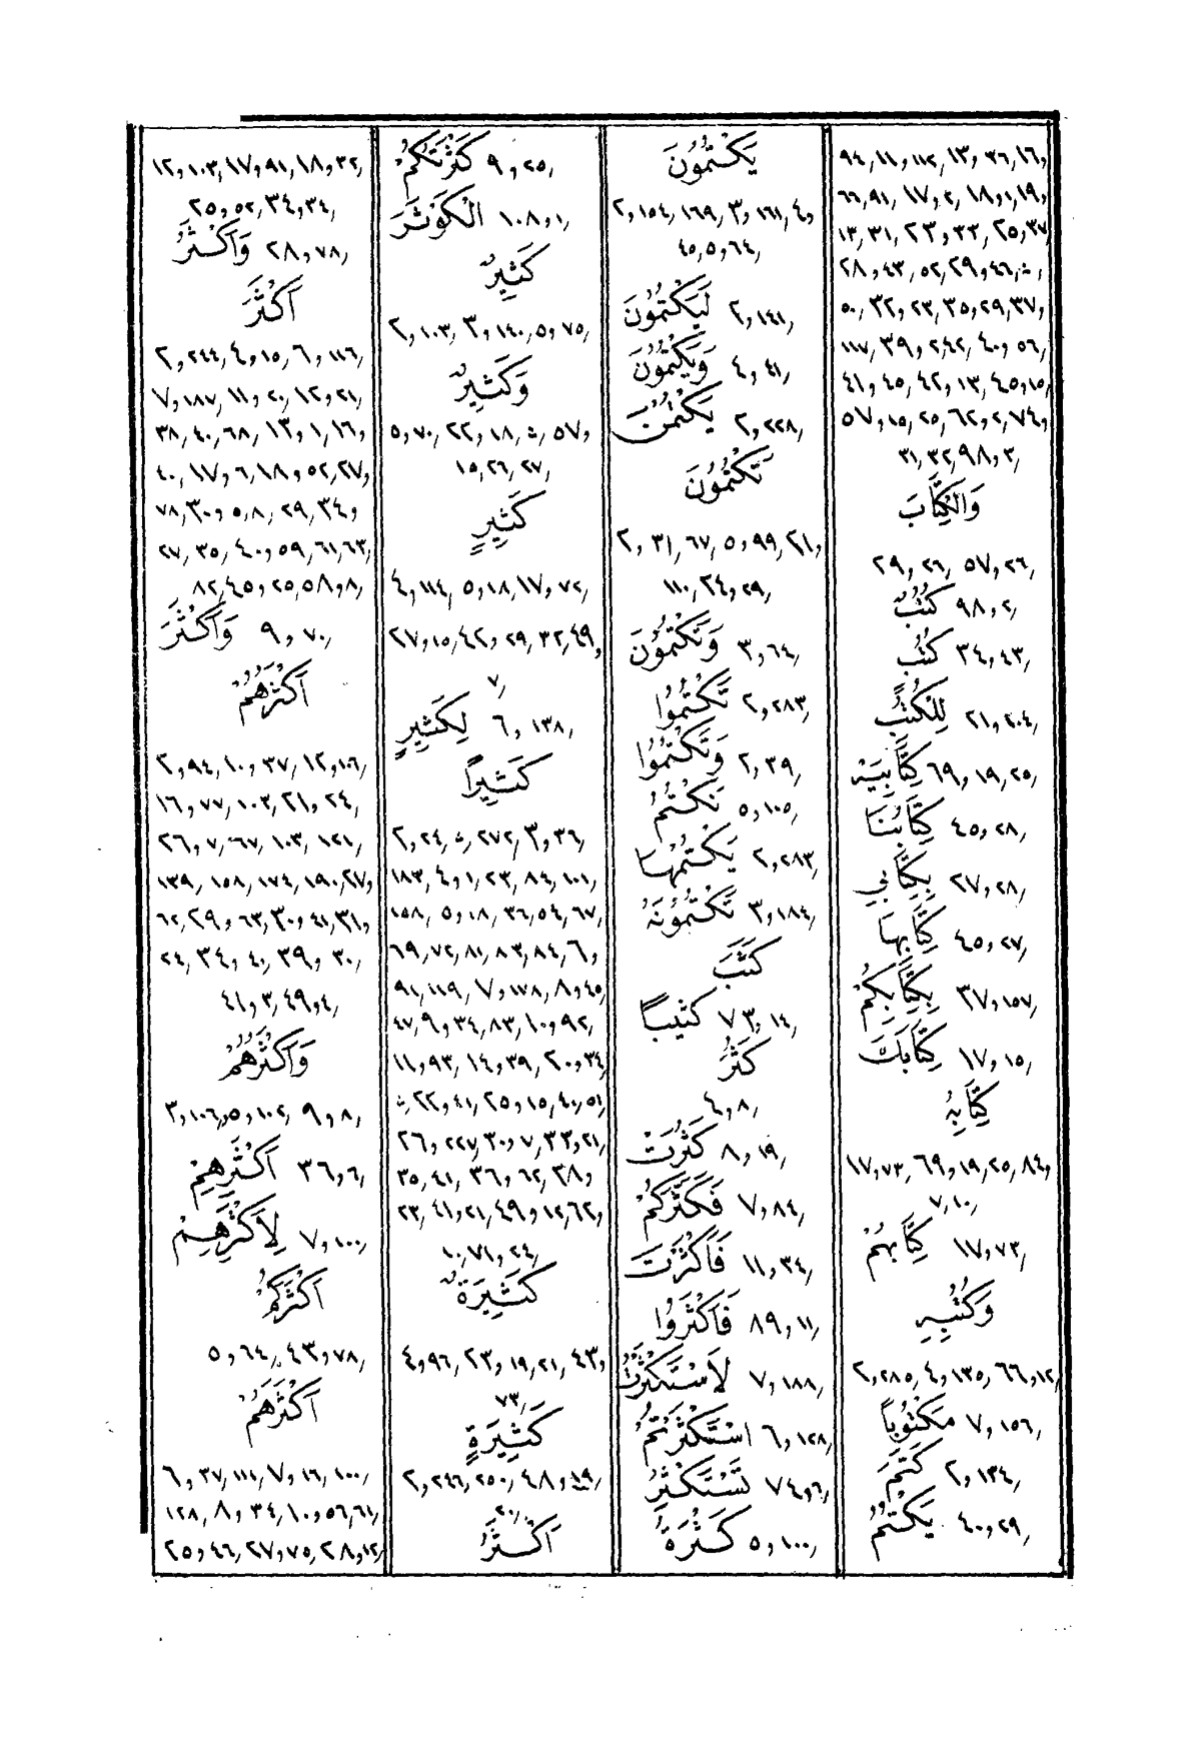 ٩٤,١١,١١٢,١٣,٣٦,١٦,
٦٦,٩١,١٧,٢,١٨,١,١٩,
١٣,٣١,٢٣,٣٣,٢٥,٣٧
٢٨,٤٣,٥٢,٢٩,٤٦,
٥٠,٣٢,٢٣,٣٥,٢٩,٣٧,
١١٧,٣٩,٢,٤٢,٤٠,٥٦,
٤١,٤٥,٤٢,١٣,٤٥,١٥,
٥٧,١٥,٢٥,٦٢,٢,٧٤,
٣١,٣٢,٩٨,٣,
وَالْكِتَابَ
٢٩,٢٦,٥٧,٢٦,
٩٨,٢, كُتُبٌ
٣٤,٤٣, كُتُبٍ
٢١,١٠٤, لِلْكُتُبِ
٦٩,١٩,٢٥, كِتَابِيَهْ
٤٥,٢٨, كِتَابُنَا
٢٧,٢٨, بِكِتَابِي
٤٥,٢٧, كِتَابِهَا
٣٧,١٥٧, بِكِتَابِكُمْ
١٧,١٥, كِتَابَكَ
كِتَابِهِ
١٧,٧٣,٦٩,١٩,٢٥,٨٤,
٧,١٠,
١٧,٧٣, كِتَابِهِمْ
وَكُتُبِهِ
٢,٢٨٥,٤,١٣٥,٦٦,١٢,
٧,١٥٦, مَكْتُوباً
٢,١٣٤, كَتَمَ
٤٠,٢٩, يَكْتُمُ
يَكْتُمُونَ
٢,١٥٤,١٦٩,٣,١٦١,٤,
٤٥,٥,٦٤,
٢,١٤١, لَيَكْتُمُونَ
٤,٤١, وَيَكْتُمُونَ
٢,٢٢٨, يَكْتُمْنَ
تَكْتُمُونَ
٢,٣١,٦٧,٥,٩٩,٢١,
١١٠,٢٤,٢٩,
٣,٦٤, وَتَكْتُمُونَ
٢,٢٨٣, تَكْتُمُوا
٢,٣٩, وَتَكْتُمُوا
٥,١٠٥, نَكْتُمُ
٢,٢٨٣, يَكْتُمْهَا
٣,١٨٤, تَكْتُمُونَهُ
كَثَبَ
٧٣,١٤, كَثِيباً
كَثُرَ
٤,٨,
٨,١٩, كَثُرَتْ
٧,٨٤, فَكَثَّرَكُمْ
١١,٣٤, فَأَكْثَرْتَ
٨٩,١١, فَأَكْثَرُوا
٧,١٨٨, لَاسْتَكْثَرْتُ
٦,١٢٨, اسْتَكْثَرْتُمْ
٧٤,٦, تَسْتَكْثِرُ
٥,١٠٠, كَثْرَةُ
٩,٢٥, كَثْرَتُكُمْ
١٠٨,١, الْكَوْثَرَ
كَثِيرٌ
٢,١٠٣,٣,١٤٠,٥,٧٥,
وَكَثِيرٌ
٥,٧٠,٢٢,١٨,ث,٥٧,
١٥,٢٦,٢٧,
كَثِيرٍ
٤,١١٤,٥,١٨,١٧,٧٢,
٢٧,١٥,٤٢,٢٩,٣٢,٤٩,
٧,
٦,١٣٨, لِكَثِيرٍ
كَثِيراً
٢,٢٤,ث,٢٧٢,٣,٣٦,
١٨٣,٤,١,٢٣,٨٤,١٠١,
١٥٨,٥,١٨,٣٦,٥٤,٦٧,
٦٩,٧٢,٨١,٨٣,٨٤,٦,
٩١,١١٩,٧,١٧٨,٨,٤٥,
٤٧,٩,٣٤,٨٣,١٠,٩٢,
١١,٩٣,١٤,٣٩,٢٠,٣٤,
ث,٢٢,٤١,٢٥,١٥,٤٠,٥١,
٢٦,٢٢٧,٣٠,٧,٣٣,٢١,
٣٥,٤١,٣٦,٦٢,٣٨,
٢٣,٤١,٢١,٤٩,١٢,٦٢,
١٠,٧١,٢٤,
كَثِيرَةٌ
٤,٩٦,٢٣,١٩,٢١,٤٣,
٧٣,
كَثِيرَةٍ
٢,٢٤٦,٢٥٠,٤٨,١٩,
٢٠,
أَكْثَرُ
١٢,١٠٣,١٧,٩١,١٨,٣٢,
٢٥,٥٢,٣٤,٣٤,
٢٨,٧٨, وَأَكْثَرُ
أَكْثَرَ
٢,٢٤٤,٤,١٥,٦,١١٦,
٧,١٨٧,١١,٢٠,١٢,٢١,
٣٨,٤٠,٦٨,١٣,١,١٦,
٤٠,١٧,٦,١٨,٥٢,٢٧,
٧٨,٣٠,٥,٨,٢٩,٣٤,
٢٧,٣٥,٤٠,٥٩,٦١,٦٣,
٨٢,٤٥,٢٥,٥٨,٨,
٩,٧٠, وَأَكْثَرَ
أَكْثَرُهُمْ
٢,٩٤,١٠,٣٧,١٢,١٠٦,
١٦,٧٧,١٠٢,٢١,٢٤,
٢٦,٧,٦٧,١٠٣,١٢١,
١٣٩,١٥٨,١٧٤,١٩٠,٢٧,
٦٢,٢٩,٦٣,٣٠,٤١,٣١,
٢٤,٣٤,٤٠,٣٩,٣٠,
٤١,٣,٤٩,٤,
وَأَكْثَرُهُمْ
٣,١٠٦,٥,١٠٢,٩,٨,
٣٦,٦, أَكْثَرِهِمْ
٧,١٠٠, لِأَكْثَرِهِمْ
أَكْثَرَكُمْ
٥,٦٤,٤٣,٧٨,
أَكْثَرَهُمْ
٦,٣٧,١١١,٧,١٦,١٠٠,
١٢٨,٨,٣٤,١٠,٥٦,٦١,
٢٥,٤٦,٢٧,٧٥,٢٨,١٢,